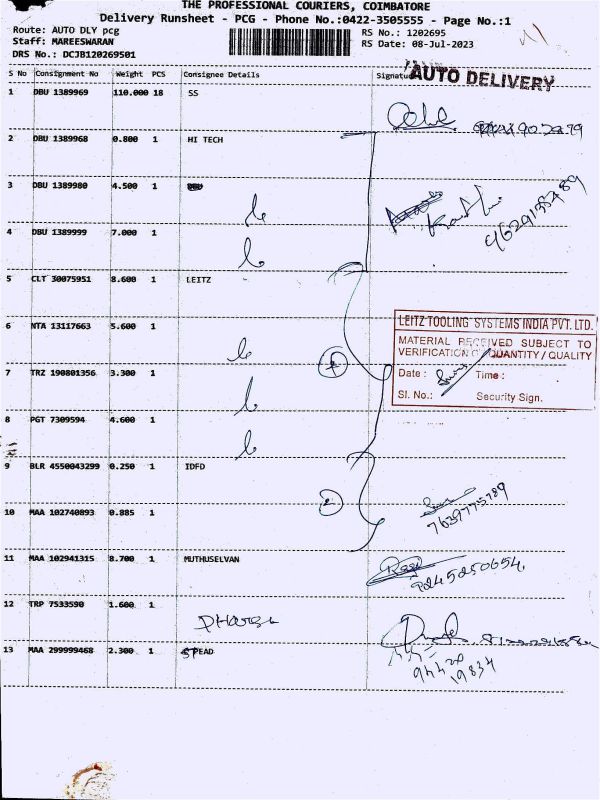 THE PROFESSIONAL COURIERS, COIMBATORE
Delivery Runsheet - PCG - Phone No.:0422-3505555 - Page No.:1
Route: AUTO DLY pcg RS No.: 1202695
Staff: MAREESWARAN RS Date: 08-Jul-2023
DRS No.: DCJB120269501
S No Consignment No Weight PCS Consignee Details Signature
AUTO DELIVERY
1 DBU 1389969 110.000 18 SS
2 DBU 1389968 0.800 1 HI TECH
3 DBU 1389980 4.500 1
9629158789
4 DBU 1389999 7.000 1
5 CLT 30075951 8.600 1 LEITZ
LEITZ TOOLING SYSTEMS INDIA PVT. LTD.
6 NTA 13117663 5.600 1
MATERIAL RECEIVED SUBJECT TO
VERIFICATION OF QUANTITY / QUALITY
7 TRZ 190801356 3.300 1
Date : Time :
Sl. No.: Security Sign.
8 PGT 7309594 4.600 1
9 BLR 4550043299 0.250 1 IDFD
10 MAA 102740893 0.885 1
7639775789
11 MAA 102941315 8.700 1 MUTHUSELVAN
9245250654
12 TRP 7533590 1.600 1
13 MAA 299999468 2.300 1 SPEAD
94420
19834